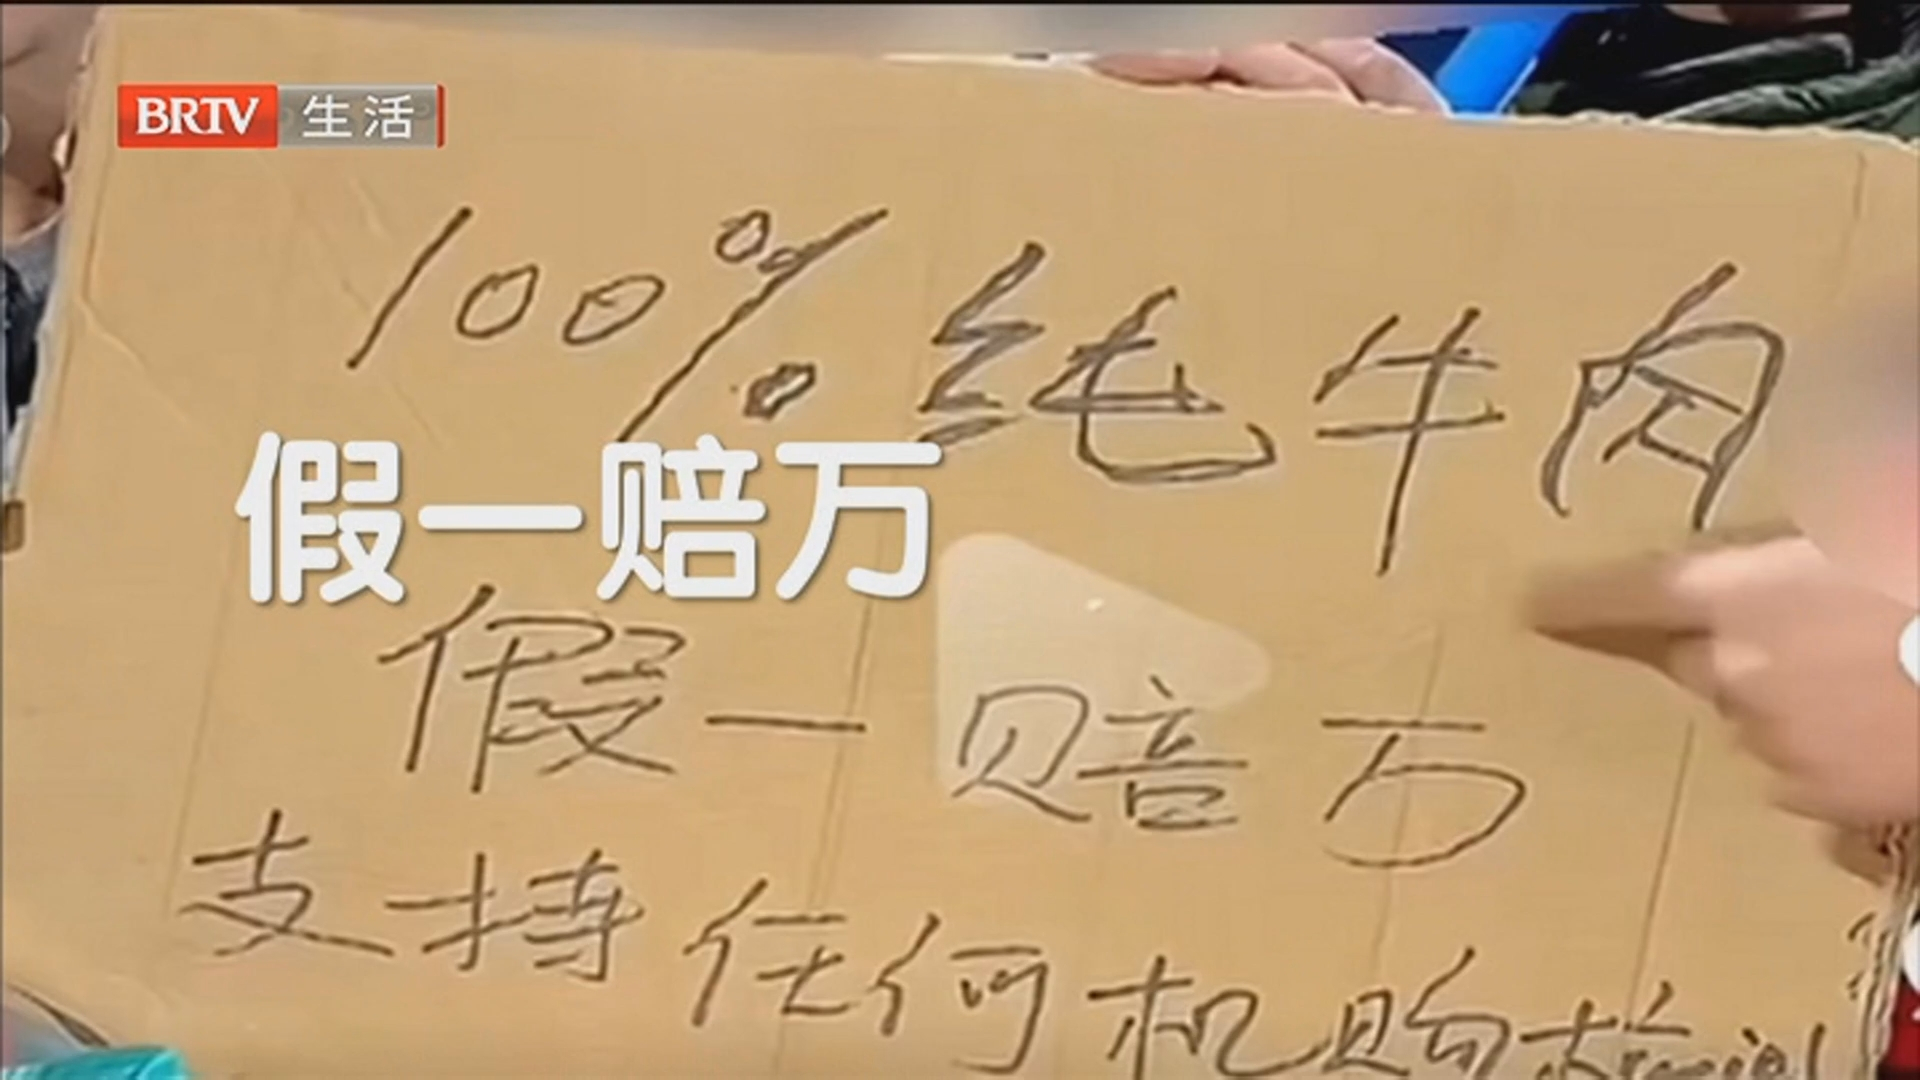 BRTV 生活
100%纯牛肉
假一赔万
假一赔万
支持任何机购检测